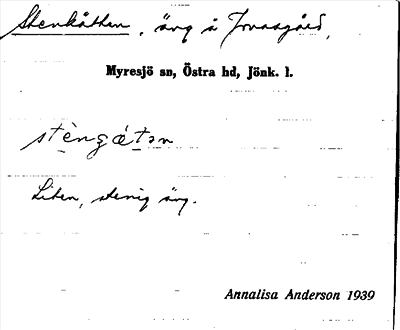 Stenkåthen, äng å Jonasgård,
Myresjö sn, Östra hd, Jönk. l.
stèngátən
Liten, stenig äng.
Annalisa Anderson 1939